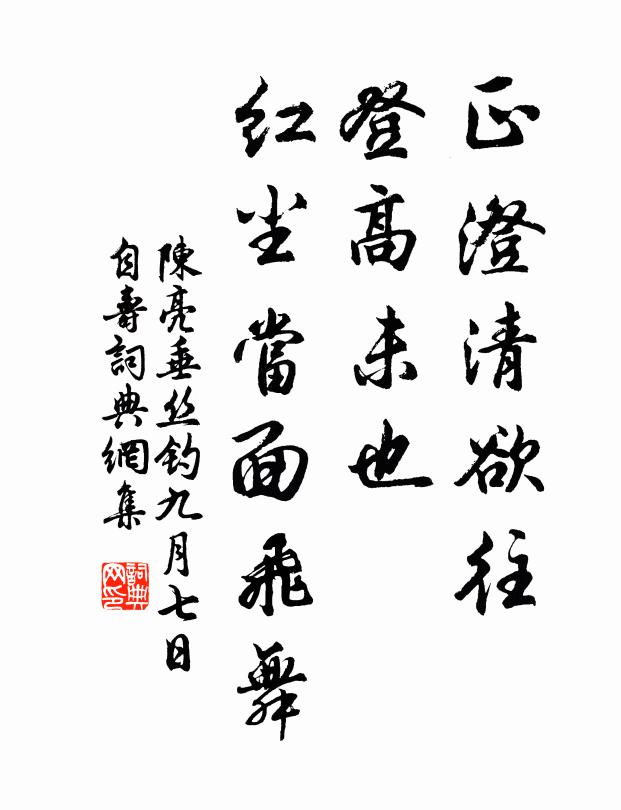 正澄清欲往
登高未也
紅塵當面飛舞
陳亮垂丝釣九月七日
自壽詞典網集
詞典
网印